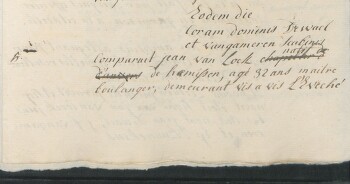 Eodem die
Coram dominis De wael
et vangameren Scabinis
Comparuit jean van Lock natif
d'anvers de hamissen, agé 32 ans maitre
boulanger, demeurant vis a vis L'Eveché